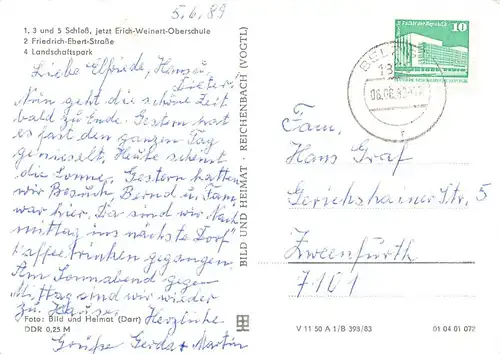 5.6.89
1, 3 und 5 Schloß, jetzt Erich-Weinert-Oberschule
2 Friedrich-Ebert-Straße
4 Landschaftspark
Liebe Elfriede, Hans u.
Dieter,
Nun geht die schöne Zeit
bald zu Ende. Gestern hat
es fast den ganzen Tag
genieselt, Heute scheint
die Sonne. Gestern hatten
wir Besuch Bernd u. Fam.
war hier. Da sind wir Nach-
mittag ins nächste Dorf
Kaffeetrinken gegangen.
Am Sonnabend gegen
Mittag sind wir wieder
zu Hause. Herzliche
Grüße Gerda + Martin
Foto: Bild und Heimat (Dart)
DDR 0,25 M
BILD UND HEIMAT · REICHENBACH (VOGTL)
Palast der Republik 10
BEL
18
06.06.8
r
Fam.
Hans Graf
Gerichshainer Str. 5
Zweenfurth
7101
V 11 50 A 1/B 398/83 01 04 01 072